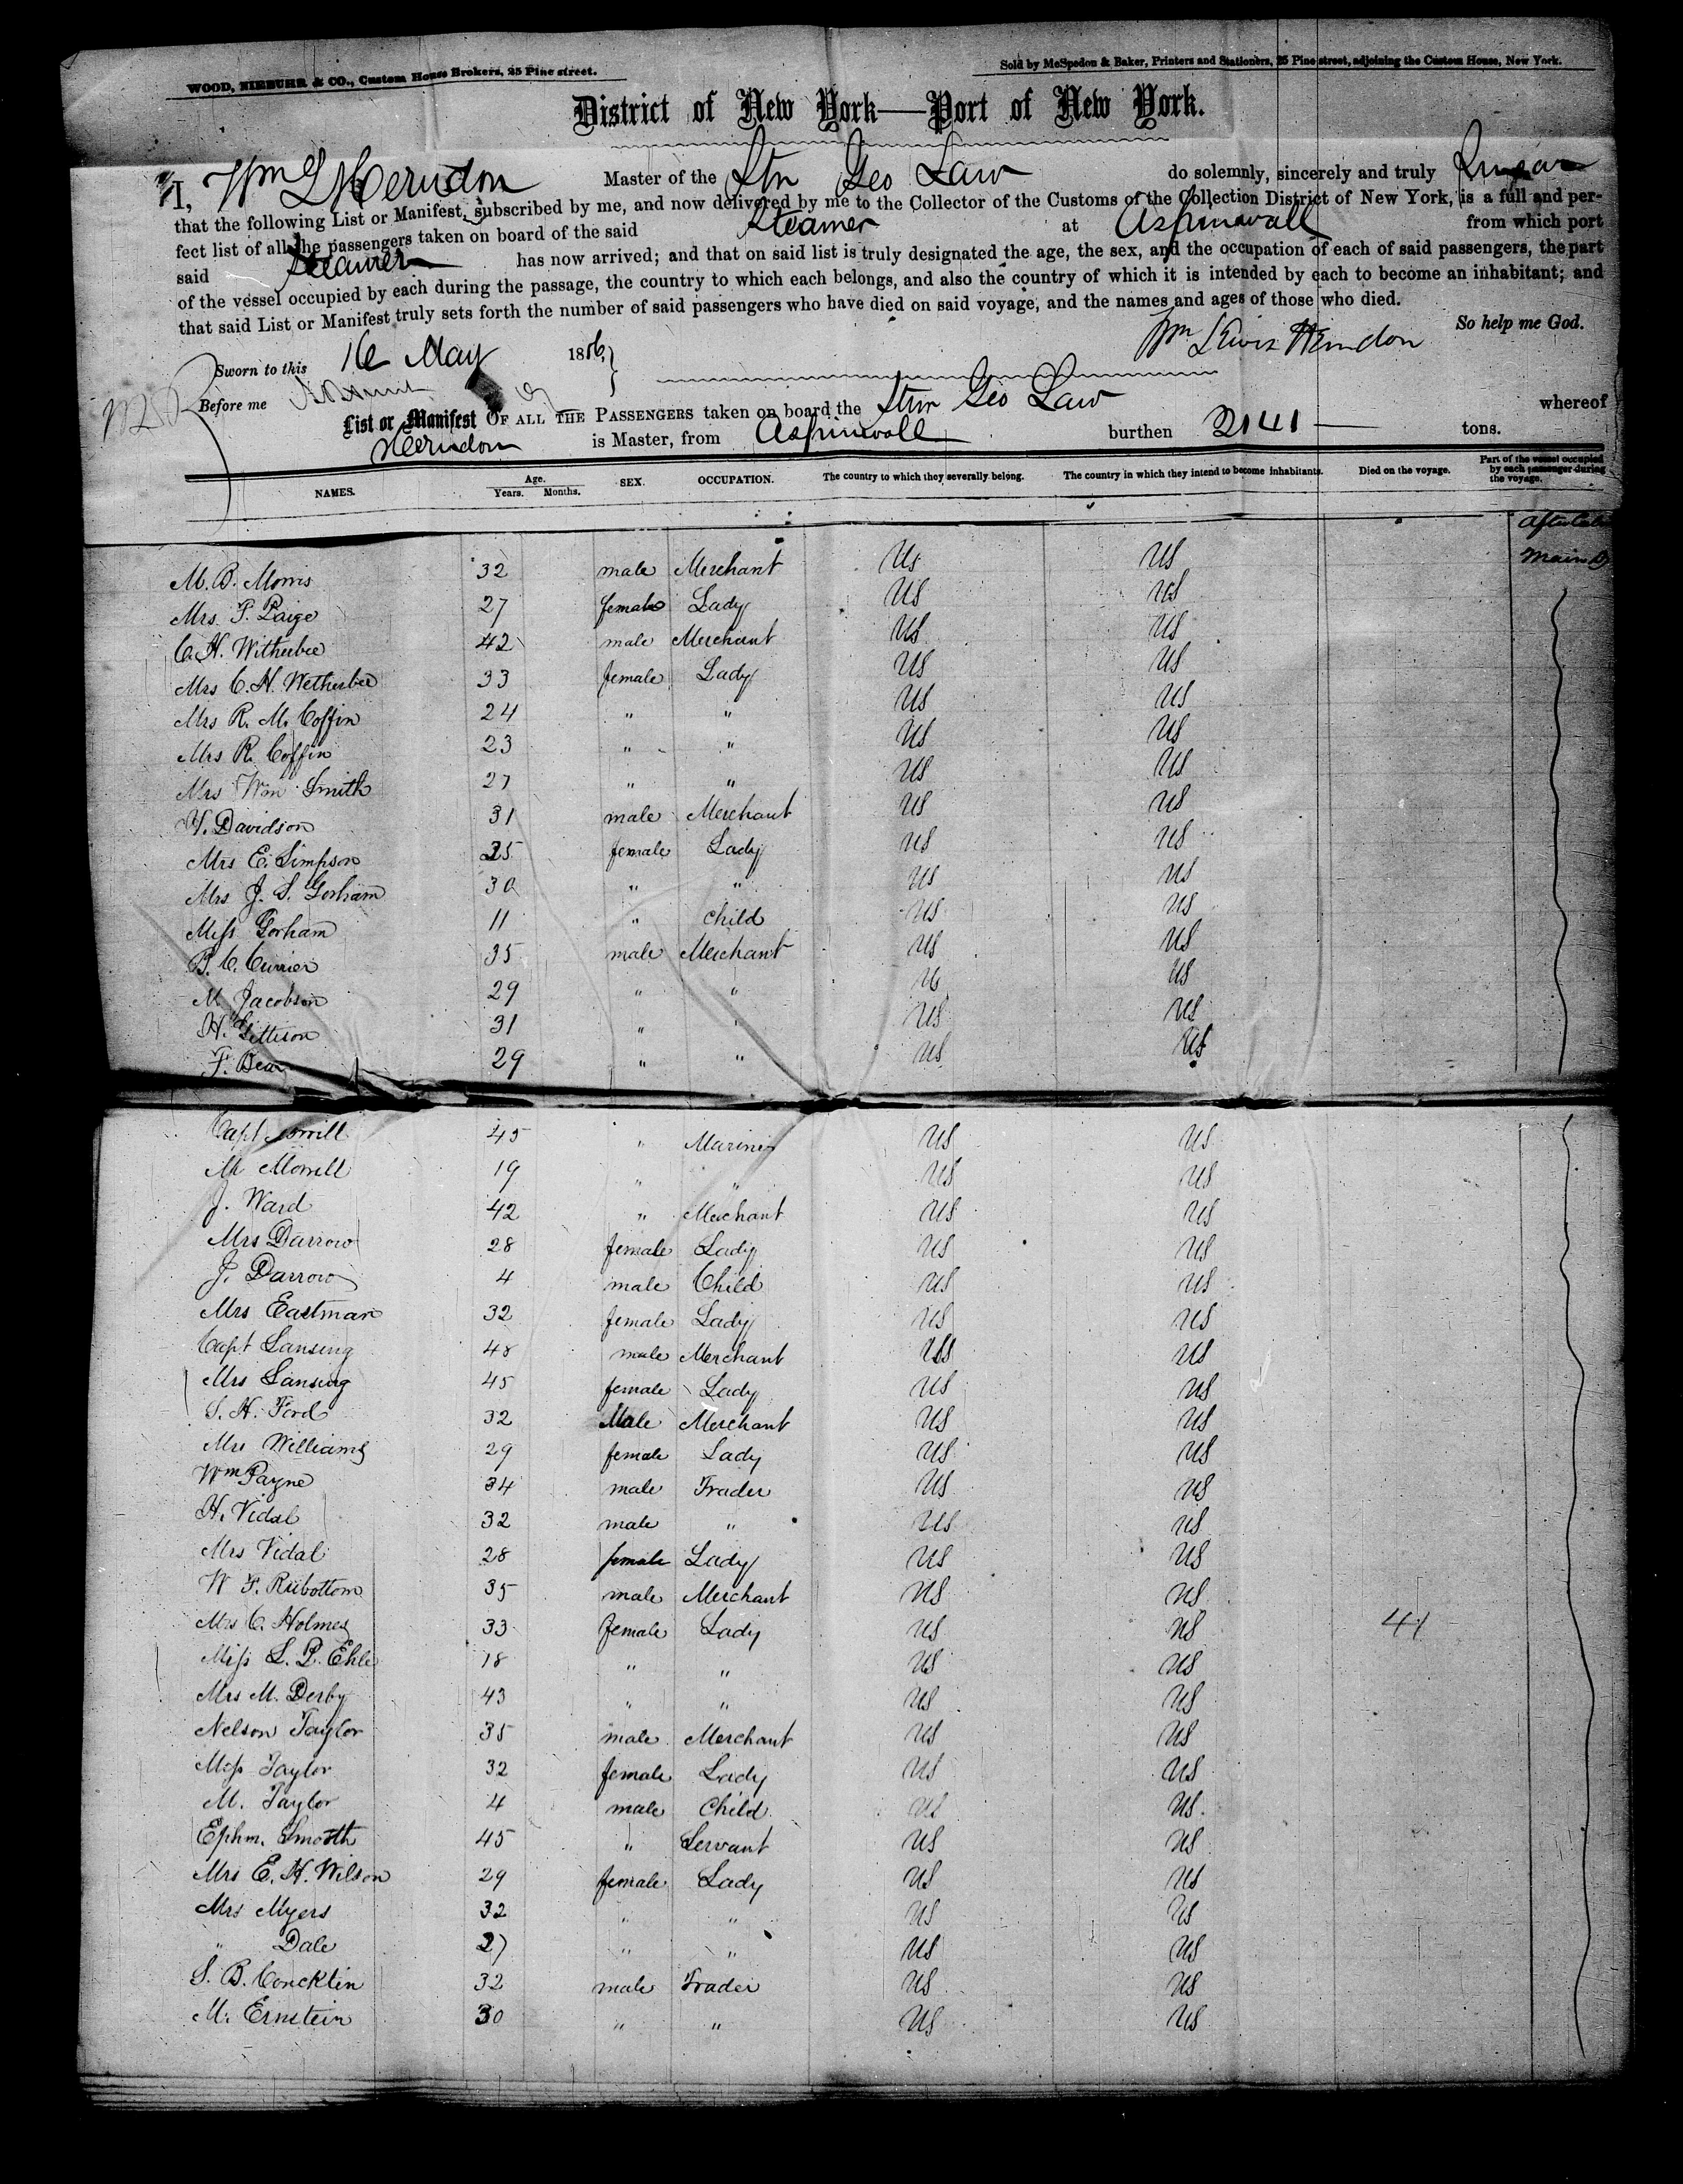 WOOD, NIEBUHR & CO., Custom House Brokers, 25 Pine street.
Sold by McSpedon & Baker, Printers and Stationers, 25 Pine street, adjoining the Custom House, New York.
District of New York—Port of New York.
I, Wm L Herndon Master of the Str Geo Law do solemnly, sincerely and truly Swear
that the following List or Manifest, subscribed by me, and now delivered by me to the Collector of the Customs of the Collection District of New York, is a full and per-
fect list of all the passengers taken on board of the said Steamer at Aspinwall from which port
said Steamer has now arrived; and that on said list is truly designated the age, the sex, and the occupation of each of said passengers, the part
of the vessel occupied by each during the passage, the country to which each belongs, and also the country of which it is intended by each to become an inhabitant; and
that said List or Manifest truly sets forth the number of said passengers who have died on said voyage, and the names and ages of those who died.
So help me God.
Wm Lewis Herndon
Sworn to this 16 May 1856,
Before me
List or Manifest OF ALL THE PASSENGERS taken on board the Str Geo Law whereof
Herndon is Master, from Aspinwall burthen 2141 — tons.
NAMES. Age. Years. Months. SEX. OCCUPATION. The country to which they severally belong. The country in which they intend to become inhabitants. Died on the voyage. Part of the vessel occupied by each passenger during the voyage.
M. B. Morris 32 male Merchant US US Main
Mrs. P. Paige 27 female Lady US US
C. H. Witherbee 42 male Merchant US US
Mrs C. H. Wetherbee 33 female Lady US US
Mrs R. M. Coffin 24 " " US US
Mrs R. Coffin 23 " " US US
Mrs Wm Smith 27 " " US US
Y. Davidson 31 male Merchant US US
Mrs E. Simpson 35 female Lady US US
Mrs J. S. Gorham 30 " " US US
Miss Gorham 11 " Child US US
B. C. Currier 35 male Merchant US US
M Jacobson 29 " " US US
H. Gittison 31 " " US US
F. Bear 29 " " US US
Capt Morrill 45 " Mariner US US
M Morrill 19 " " US US
J. Ward 42 " Merchant US US
Mrs Darrow 28 female Lady US US
J. Darrow 4 male Child US US
Mrs Eastman 32 female Lady US US
Capt Lansing 48 male Merchant US US
Mrs Lansing 45 female Lady US US
S. H. Ford 32 Male Merchant US US
Mrs Williams 29 female Lady US US
Wm Payne 34 male Trader US US
H. Vidal 32 male " US US
Mrs Vidal 28 female Lady US US
W F. Rubottom 35 male Merchant US US
Mrs C. Holmes 33 female Lady US US 41
Miss L. P. Ehle 18 " " US US
Mrs M. Derby 43 " " US US
Nelson Taylor 35 male Merchant US US
Miss Taylor 32 female Lady US US
M. Taylor 4 male Child US US
Ephm. Smooth 45 " Servant US US
Mrs E. H. Wilson 29 female Lady US US
Mrs Myers 32 " " US US
" Dale 27 " " US US
S. B. Concklin 32 male Trader US US
M. Ernstein 30 " " US US